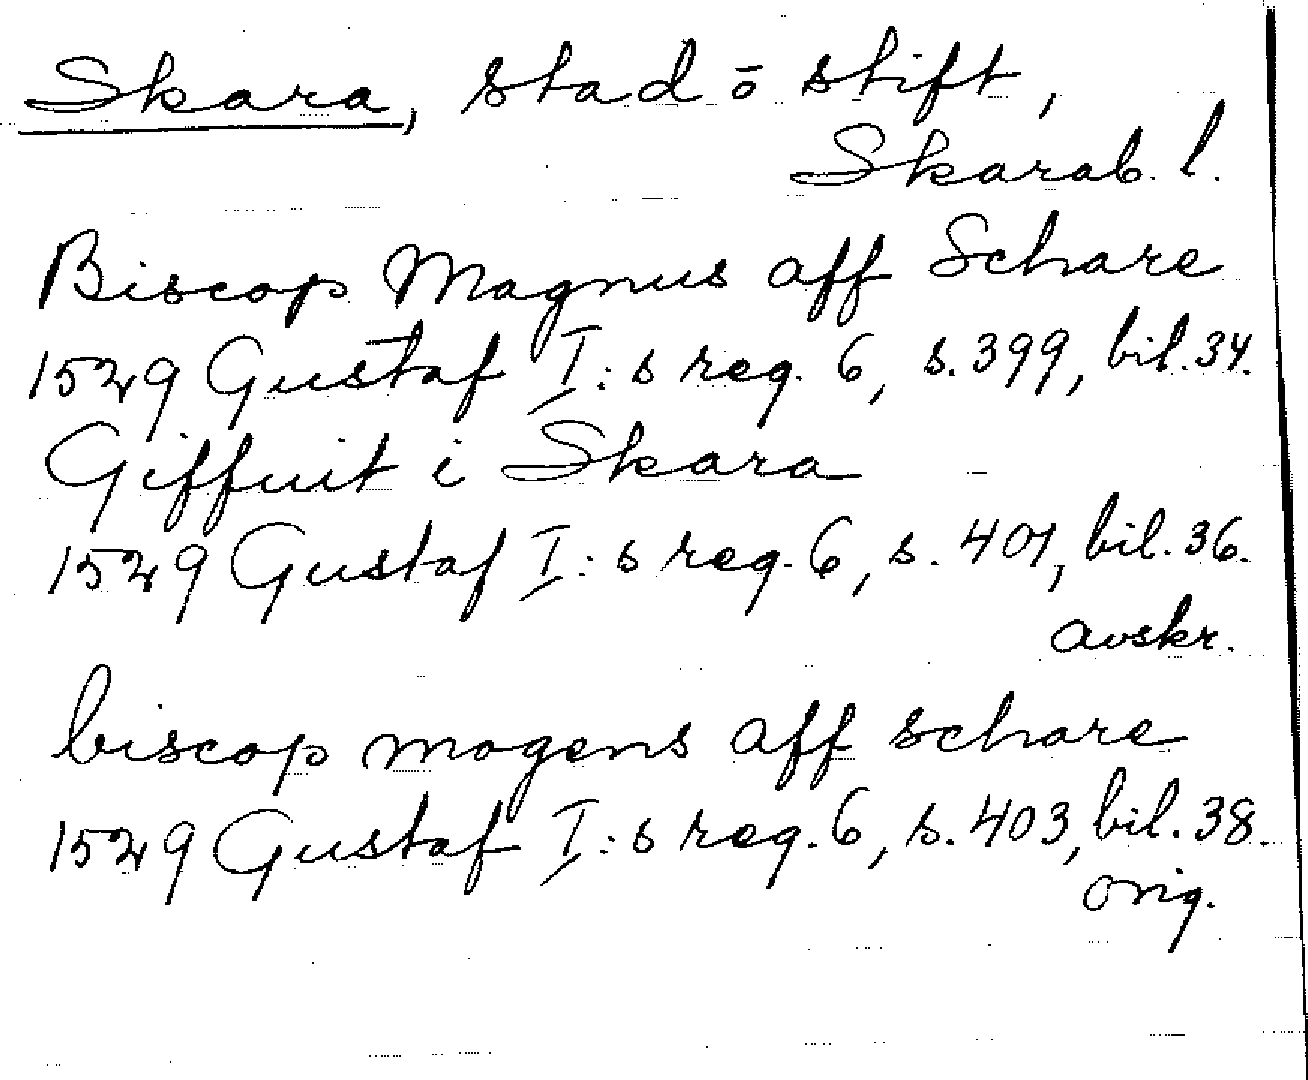 Skara, stad ō stift,
Skarab. l.
Biscop Magnus aff Schare
1529 Gustaf I:s reg. 6, s. 399, bil. 34.
Giffuit i Skara
1529 Gustaf I:s reg. 6, s. 401, bil. 36.
avskr.
biscop mogens aff schare
1529 Gustaf I:s reg. 6, s. 403, bil. 38.
orig.